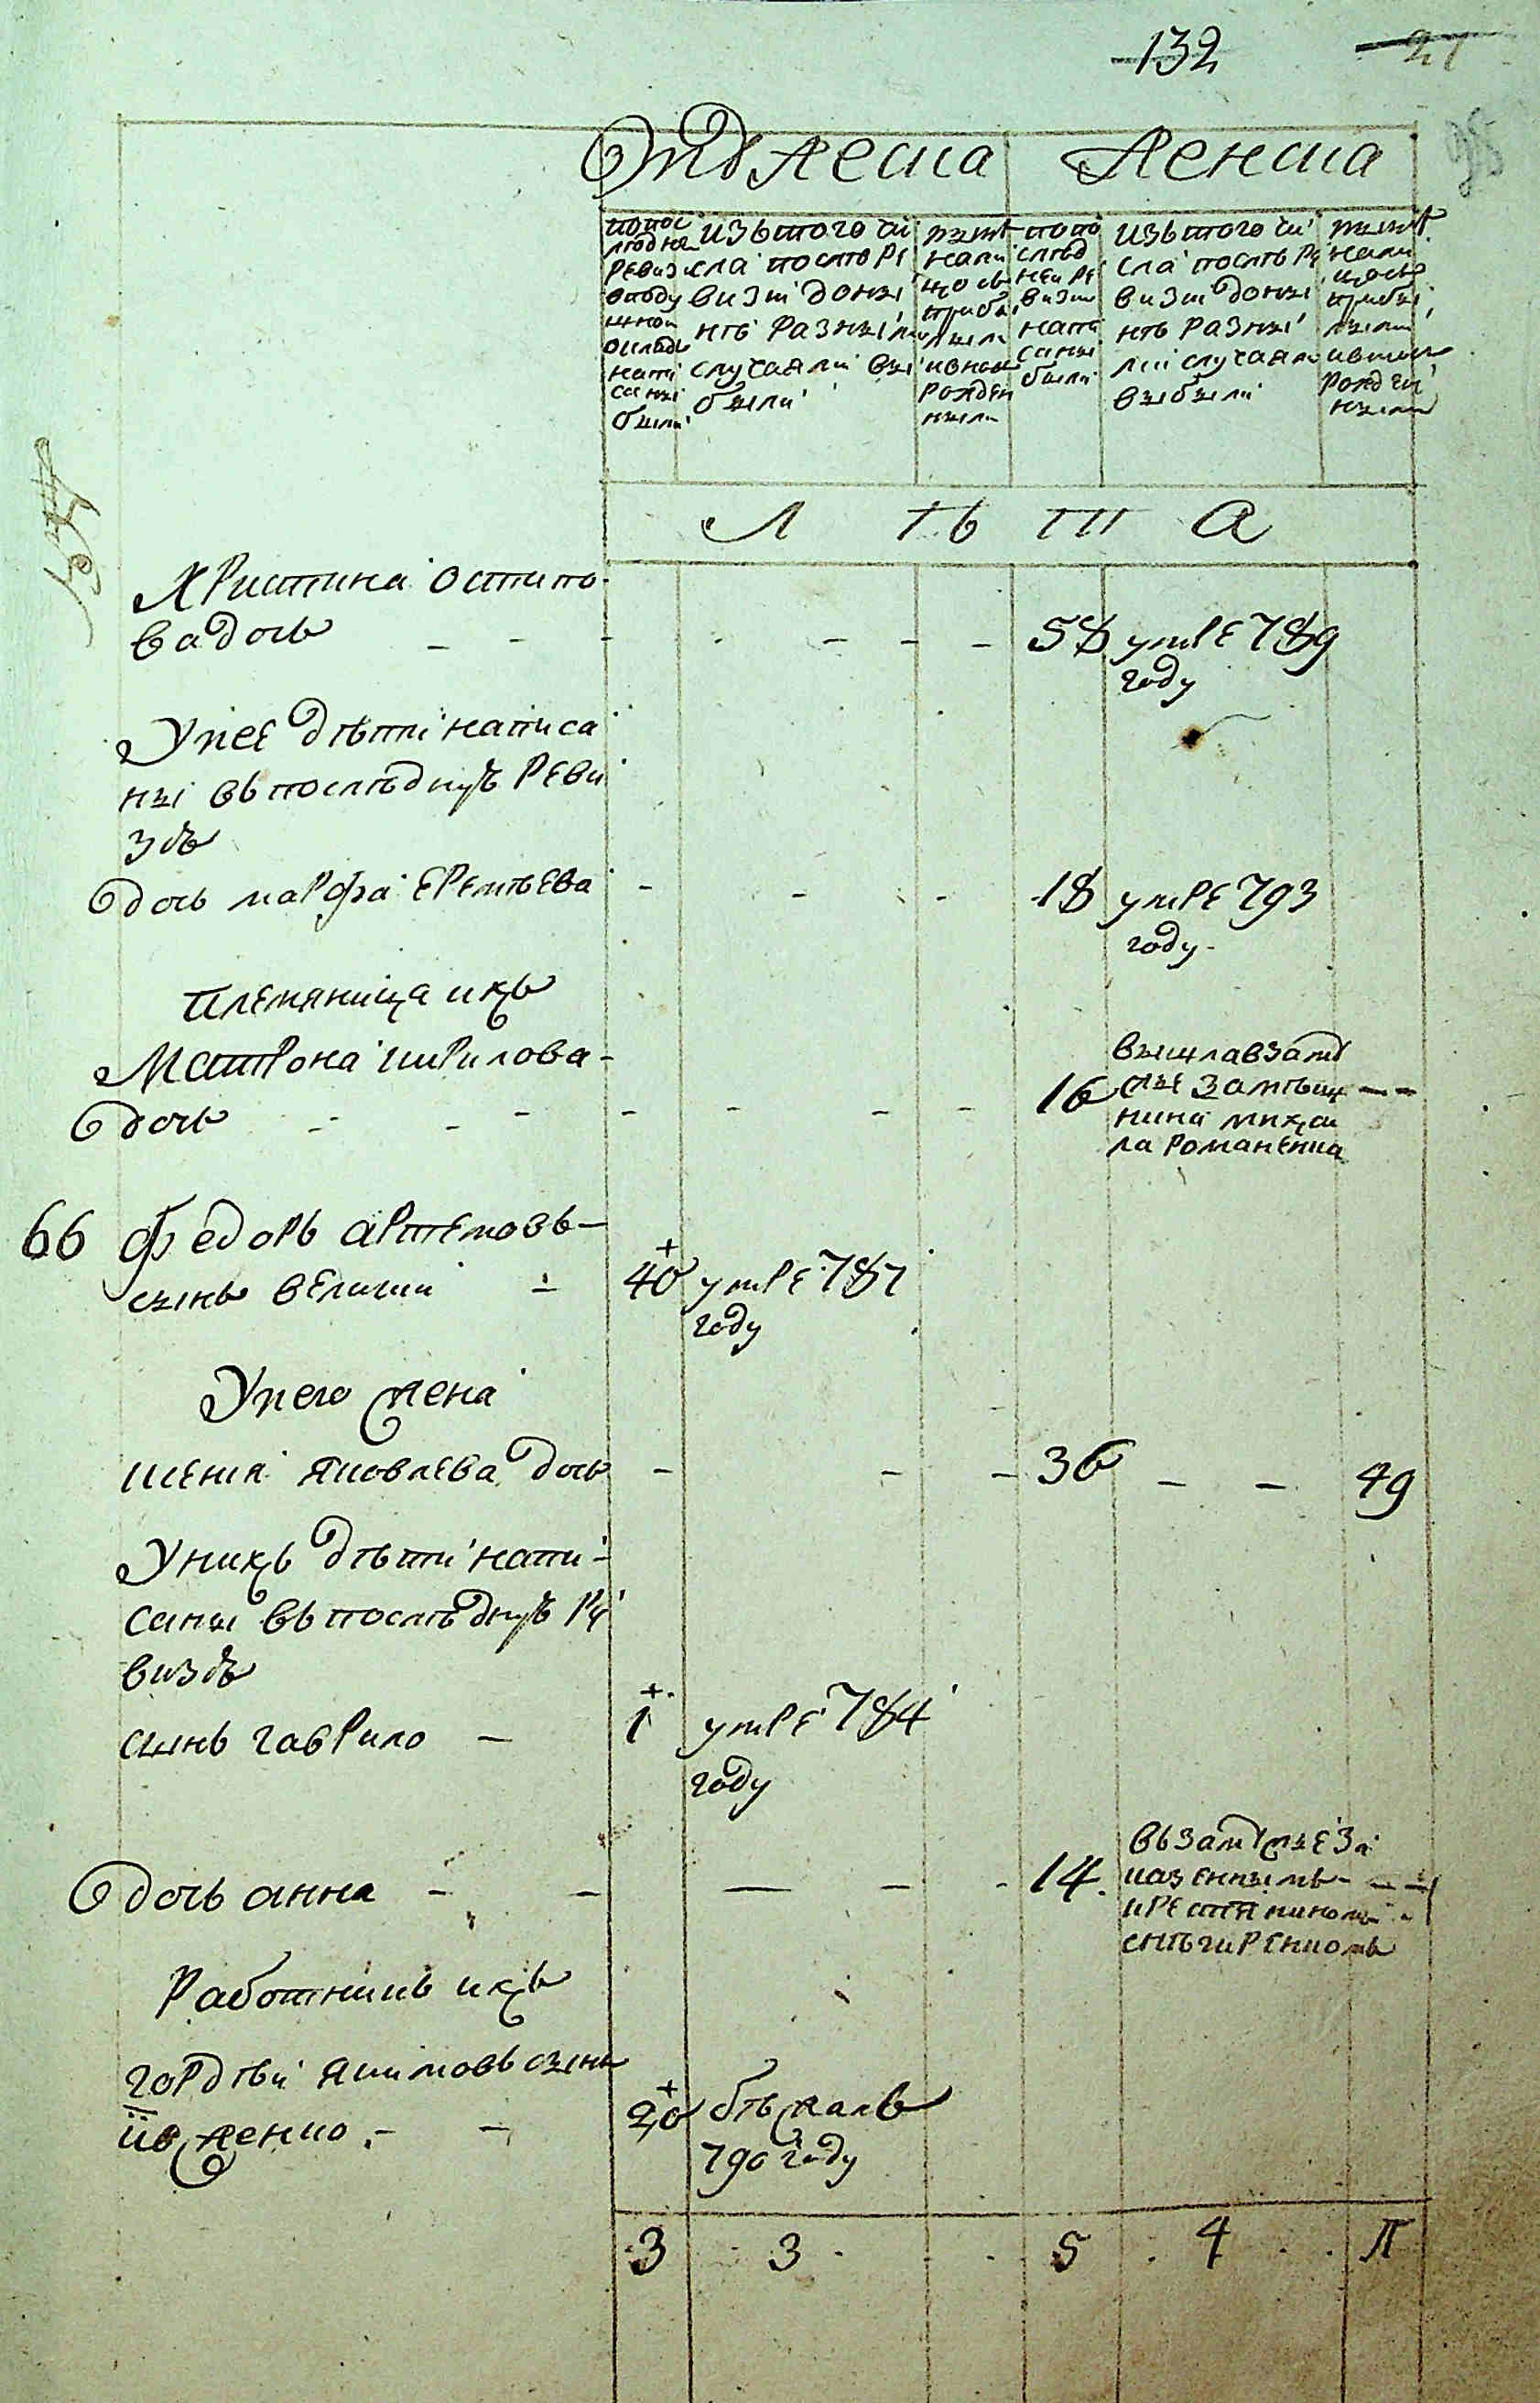 132 21
Мужеска Женска
по пос
людней
ревизи
в поду
шном
окладе
напи
саны
были
изъ того чи
сла после ре
визіи до ны
не разными
случаями вы
были
ныне
нали
цо съ
прибы
лыми
и вновь
рожден
ными
по по
след
ней ре
визіи
напи
саны
были
изъ того чи
сла после ре
визіи до ны
не разны
ми случаями
выбыли
ныне
нали
цо съ
прибы
лыми
и вновь
рожден
ными
Л ѣ т а
Христина остапо
ва дочь 58 умре 789
году
У нее дѣти написа
ны въ последнуѣ реви
зѣ
дочь марфа еремѣева 18 умре 793
году
племяница ихъ
Матрона кирилова
дочь 16
вышла взаму
жѣ за мѣщ
нина михаи
ла романенка
66 федоръ артемовъ
сынъ великий 40 умре 787
году
У него жена
ксения яковлева дочь 36 49
У нихъ дѣти напи
саны въ последнуѣ ре
визѣ
сынъ гаврило 1 умре 784
году
дочь анна 14
въ замужѣ за
казеннымъ
крестяниномъ
снѣгиренкомъ
Работникъ ихъ
гордѣй якимовъ сынъ
ивженко 20 бѣжалъ
790 году
3 3 5 4 Л